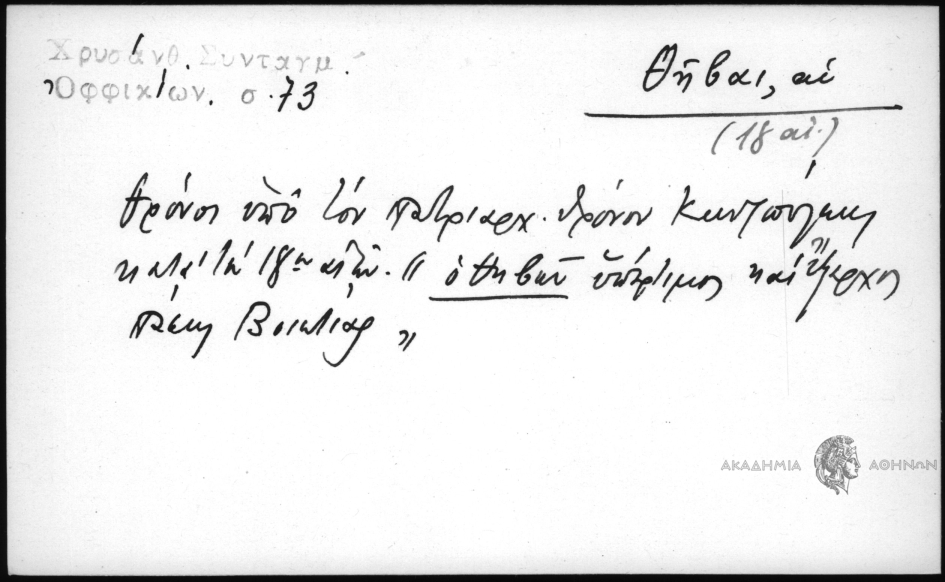 Χρυσάνθ. Συνταγμ.
Ὀφφικίων. σ. 73
Θῆβαι, αἱ
(18 αἰ.)
θρόνος ὑπὸ τὸν πατριαρχ. θρόνον Κων/πόλεως
κατὰ τὸν 18ον αἰῶν. "ὁ Θηβῶν ὑπέρτιμος καὶ ἔξαρχος
πάσης Βοιωτίας"
ΑΚΑΔΗΜΙΑ ΑΘΗΝΩΝ